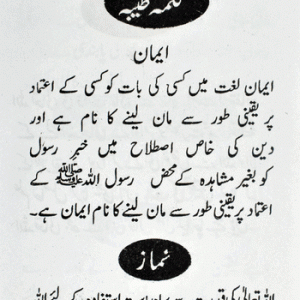 کلمہ طیبہ
ایمان
ایمان لغت میں کسی کی بات کو کسی کے اعتماد
پر یقینی طور سے مان لینے کا نام ہے اور
دین کی خاص اصطلاح میں خبر رسول
کو بغیر مشاہدہ کے محض رسول اللہ ﷺ کے
اعتماد پر یقینی طور سے مان لینے کا نام ایمان ہے۔
نماز
اللہ تعالیٰ کی قدرت سے براہ راست استفادہ کے لئے اللہ